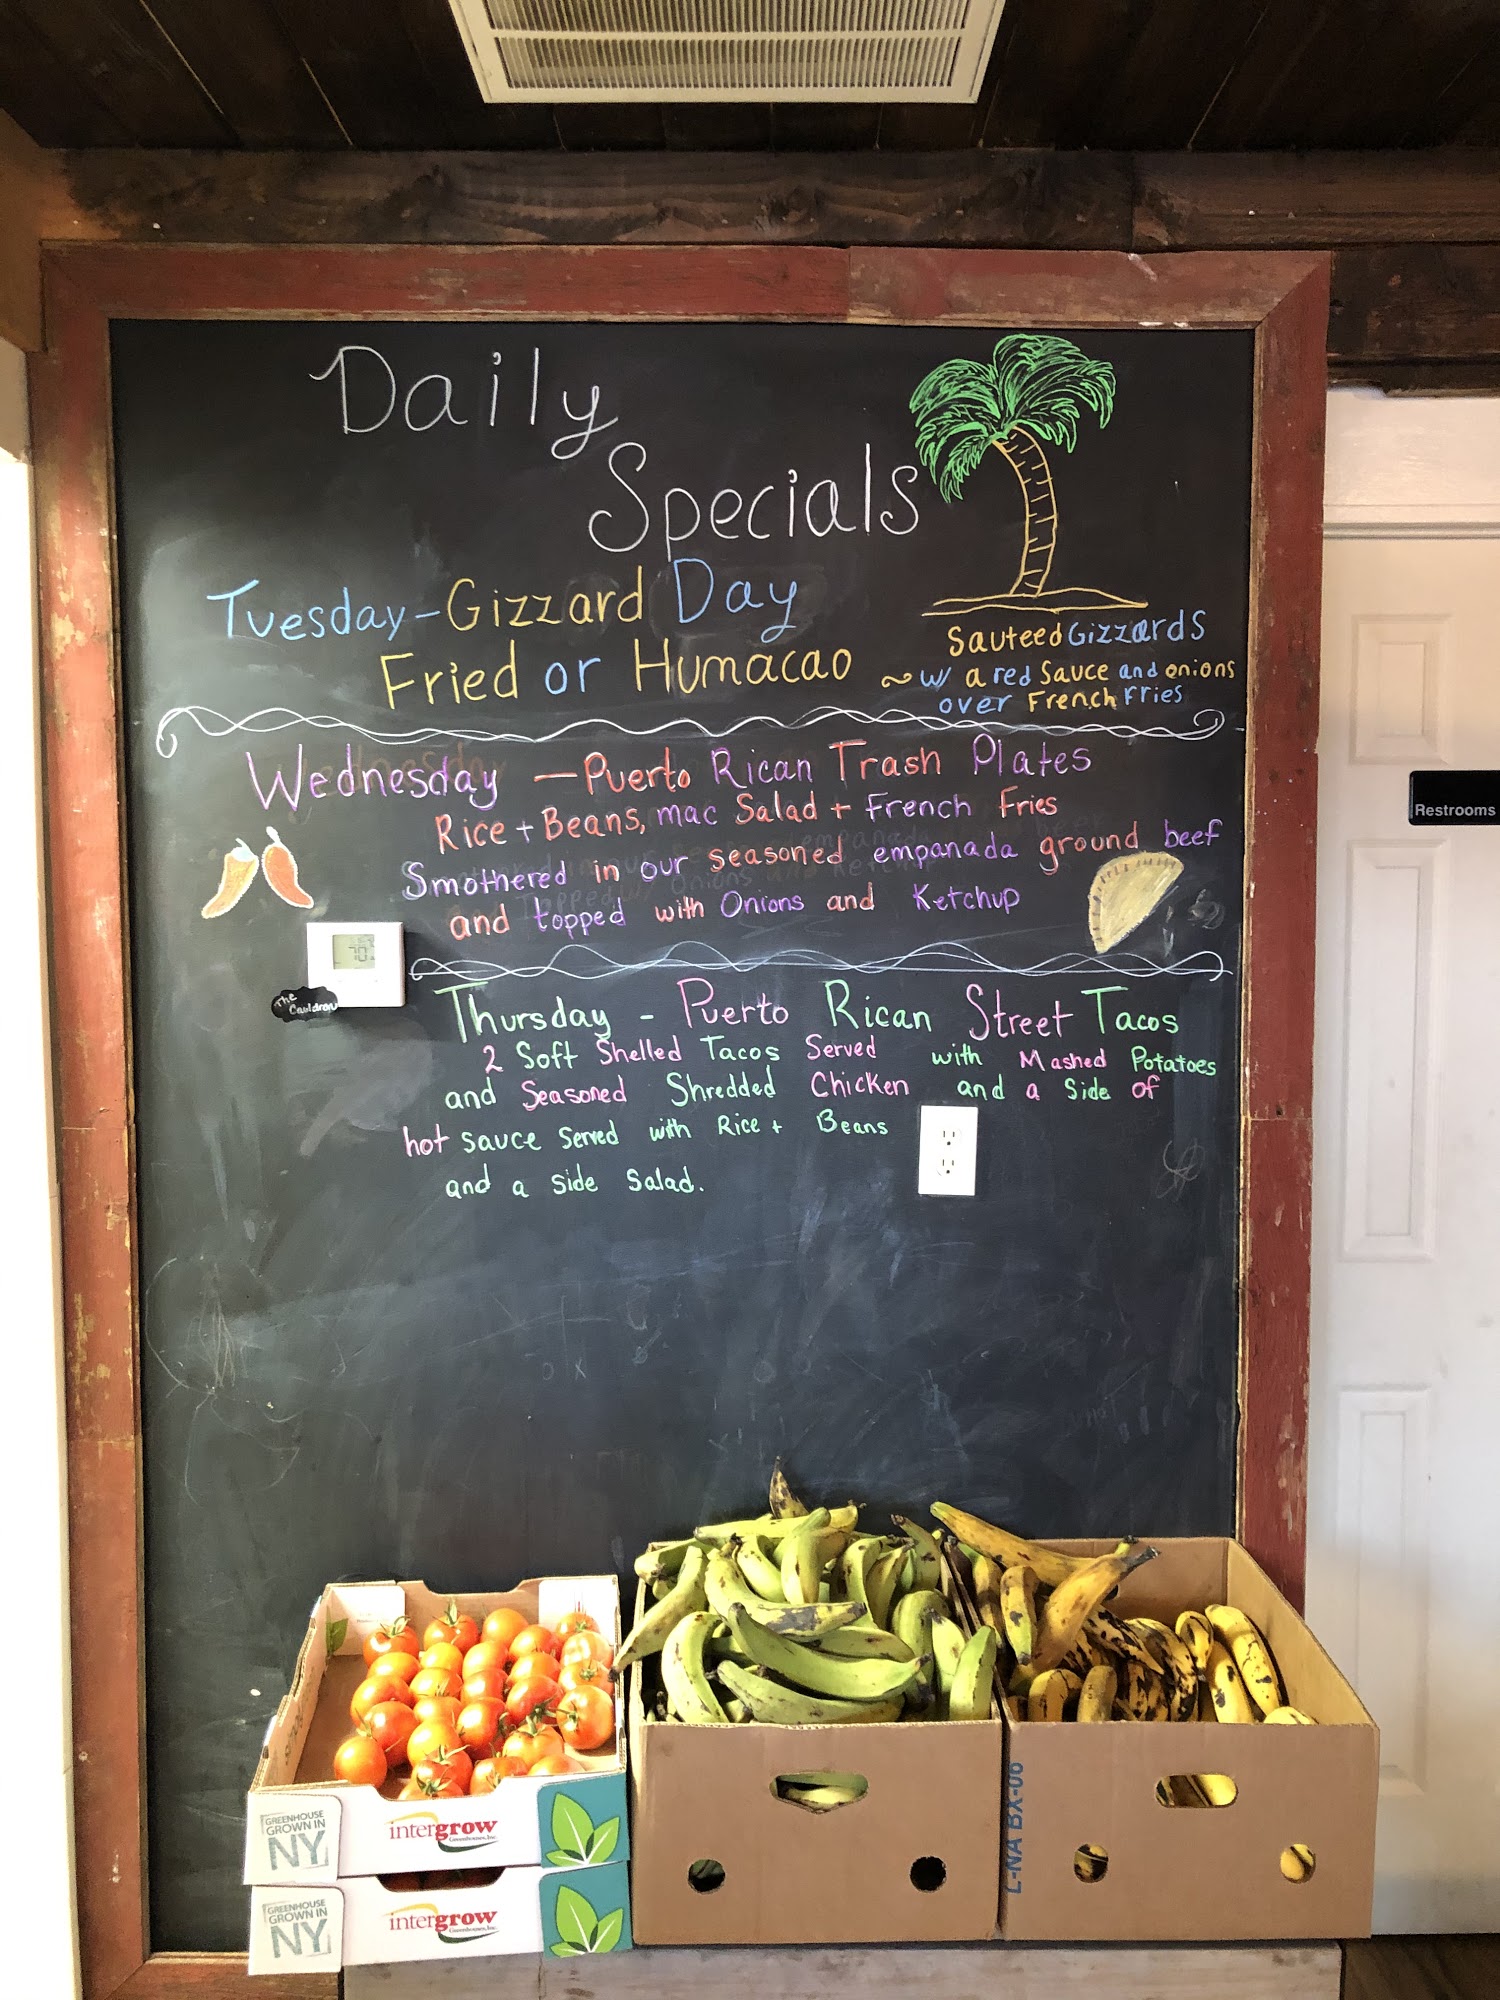 Daily
Specials
Tuesday-Gizzard Day
Fried or Humacao
Sauteed Gizzards
~ w/ a red Sauce and onions
over French Fries
Wednesday - Puerto Rican Trash Plates
Rice + Beans, mac Salad + French Fries
Smothered in our seasoned empanada ground beef
and topped with Onions and Ketchup
70
The
Cauldron
Thursday - Puerto Rican Street Tacos
2 Soft Shelled Tacos Served with Mashed Potatoes
and Seasoned Shredded Chicken and a Side of
hot sauce Served with Rice + Beans
and a side salad.
Restrooms
GREENHOUSE
GROWN IN
NY
intergrow
Greenhouses, Inc.
GREENHOUSE
GROWN IN
NY
intergrow
Greenhouses, Inc.
L-NA BX-06